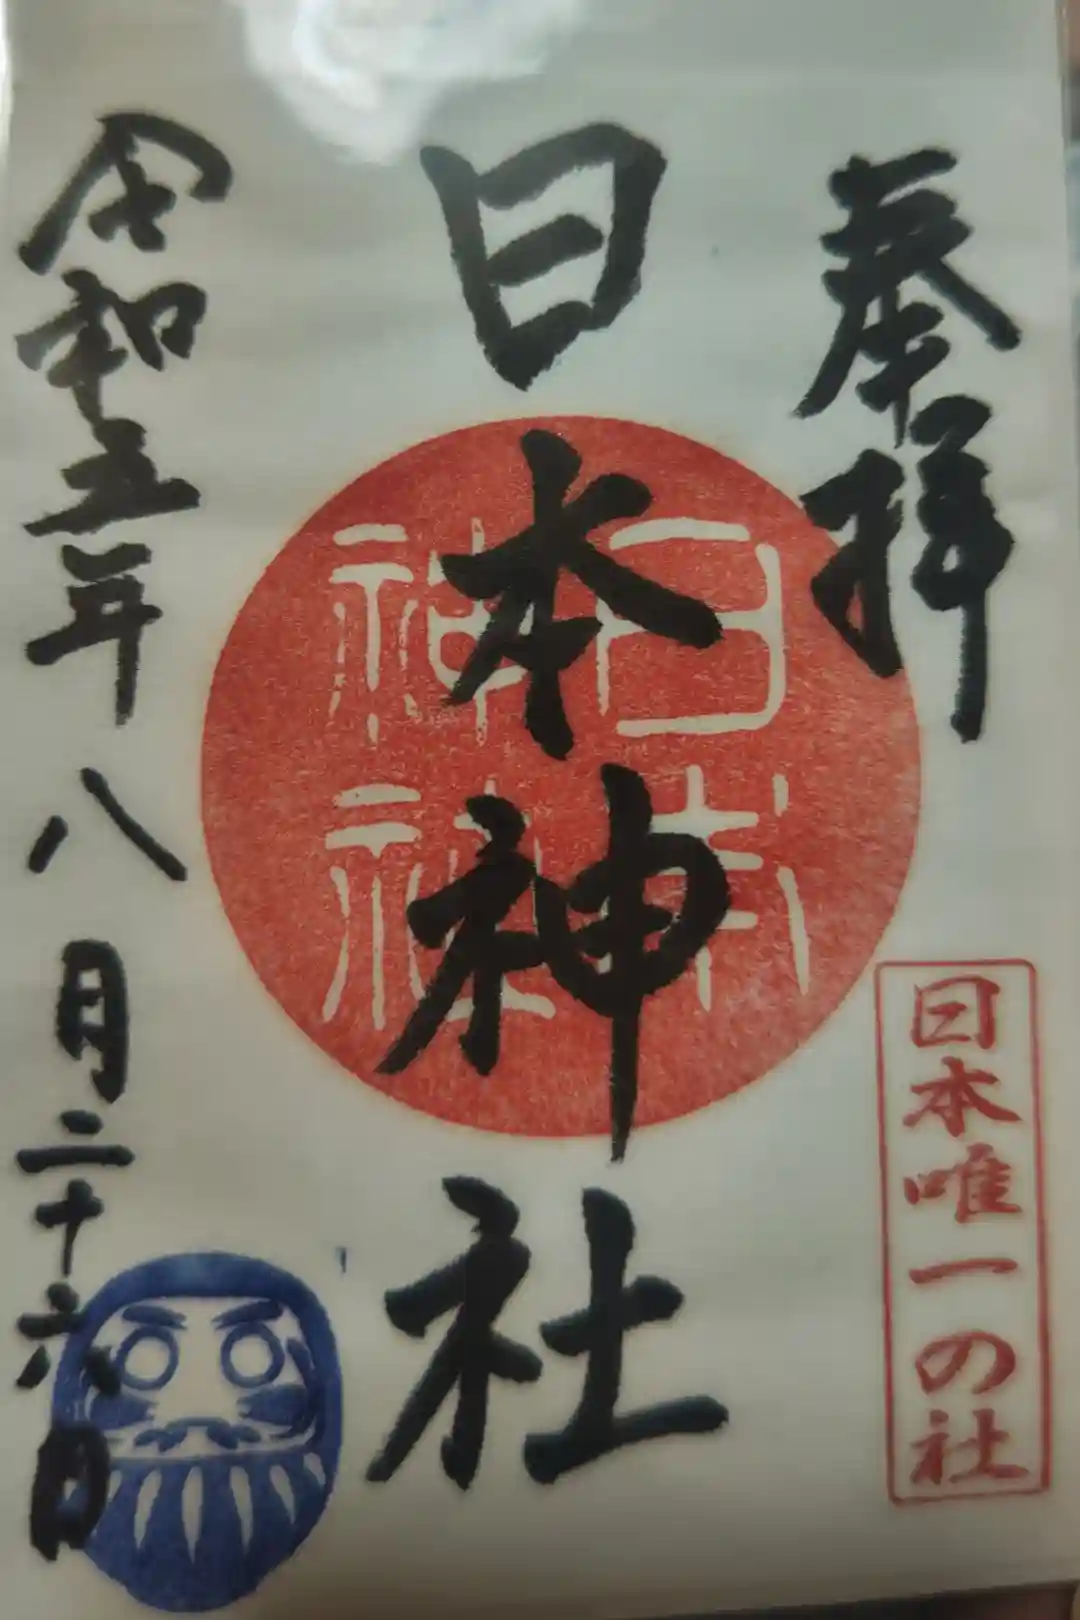 奉拝
日本唯一の社
日本神社
日本
神社
令和五年八月二十六日